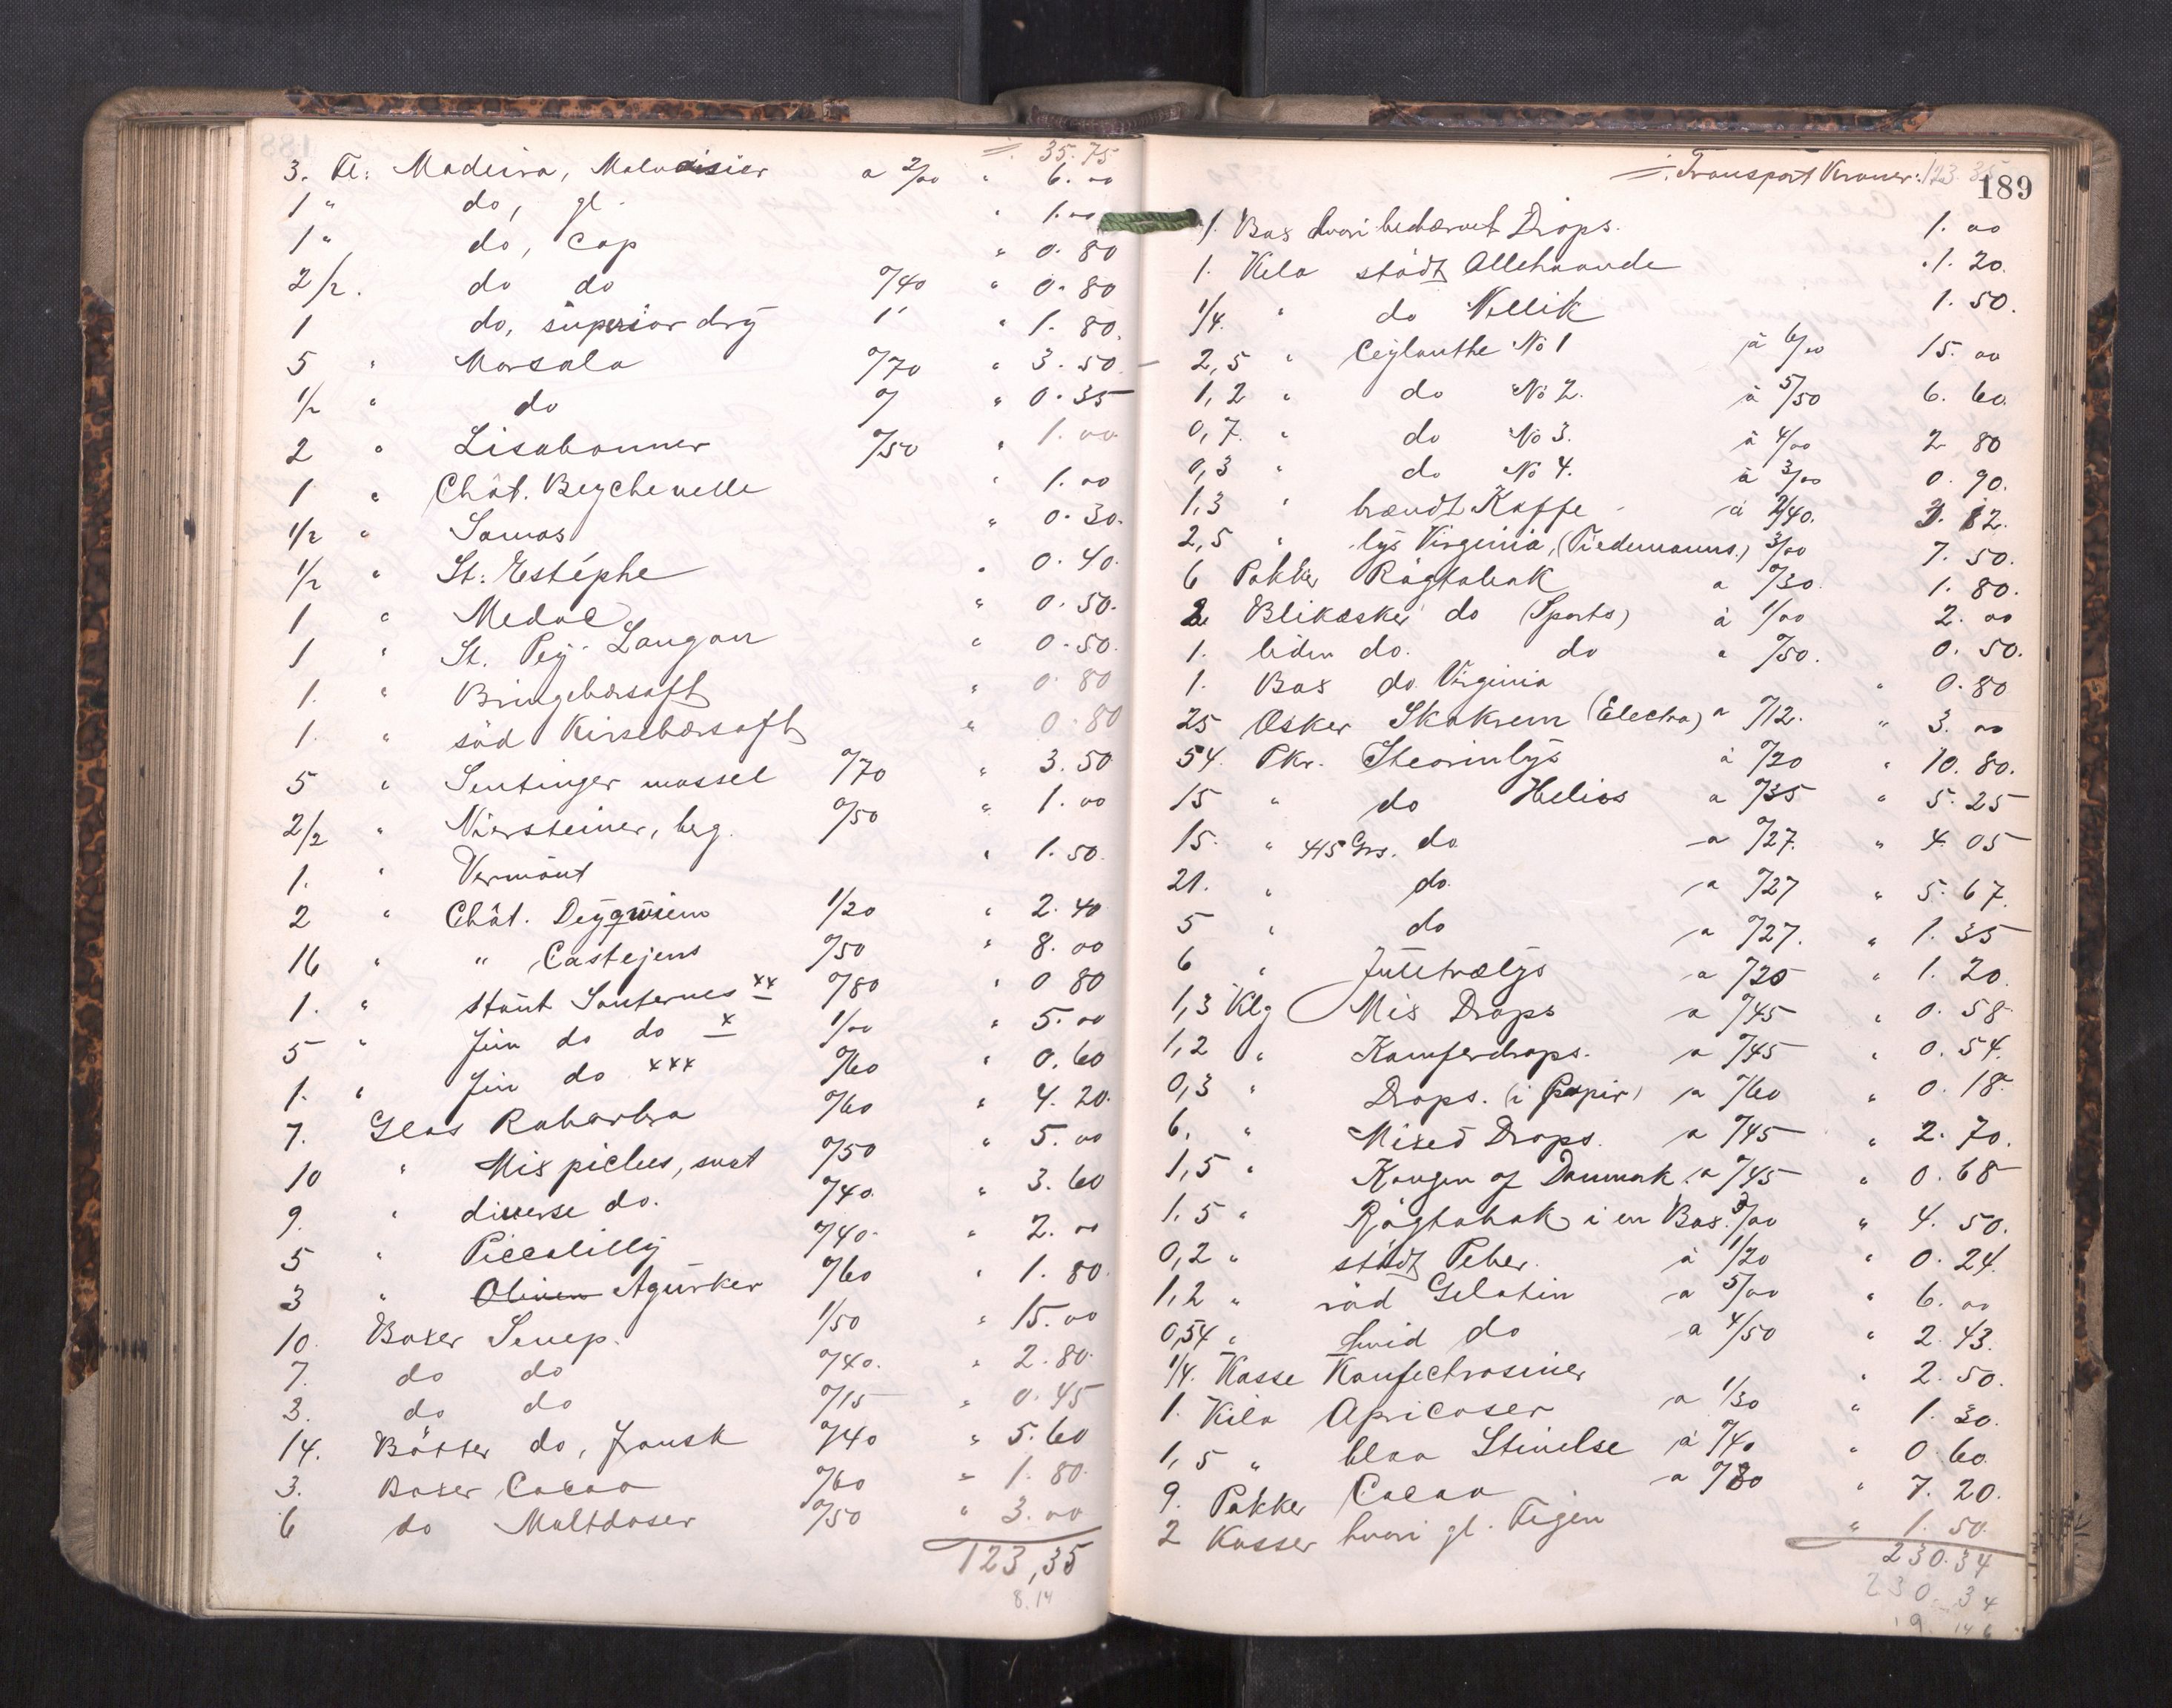 =. 35.75
3. Fl: Madeira, Malvoisier a 2/00 " 6.00
1 " do, gl. " 1.00
1 " do, Cap " 0.80
2/2. do do 0/40 " 0.80
1 do, süperior dry 1' " 1.80.
5 " Marsala 0/70 " 3.50
1/2 " do 0/ " 0.35
2 " Lisabonner 0/50 " 1.00
1 " Chât. Beychevelle " 1.00
1/2 " Samos " 0.30.
1/2 " St: Estéphe " 0.40.
1 " Medoc " 0.50.
1 " St. Pey. Langon " 0.50.
1. " Bringebærsaft " 0.80
1. " söd Kirsebærsaft " 0.80
5 " Sentinger mossel 0/70 " 3.50
2/2 " Niersteiner, beg. 0/50 " 1.00
1. " Vermöut " 1.50.
2 " Chât. Deyquiem 1/20 " 2.40
16 " " Castejens 0/50 " 8.00
1. " Haut Sauternes xx 0/80 " 0 80
5 " fin do do x 1/00 " 5.00
1. " fin do xxx 0/60 " 0.60
7. Glas Rabarbra 0/60 " 4.20.
10 " Mix picles, suat 0/50 " 5.00
9. " diverse do. 0/40. " 3.60
5 " Piccalilly 0/40. " 2.00
3 " Oliven Agürker 0/60 " 1.80.
10. Boxer Senep. 1/50 " 15.00
7. do do 0/40. " 2.80.
3. do do 0/15 " 0.45
14. Bötter do, fransk 0/40 " 5.60
3. Boxer Cacao 0/60 " 1.80.
6 do Maltdoser 0/50 " 3.00
123,35
8.14
=. Transport Kroner: 123.35
189
1. Box hvori bedærvet Drops. 1.00
1. Kilo stödt Allehaande 1.20.
1/4. " do Nellik 1.50.
2,5 " Ceylonthe No 1 à 6/00 15.00
1,2 " do No 2. à 5/50 6.60.
0,7. " do No 3. à 4/00 2 80
0,3 " do No 4. à 3/00 0.90.
1,3 " brændt Kaffe à 2/40. 3.12.
2,5 " lys Virginia, (Tiedemanns.) 3/00 7.50.
6 Pakker Rögtobak a 0/30. 1.80.
2 Blikæsker do (Sports) à 1/00 2.00
1. liden do. do " 0/50. 0.50.
1. Box do. Virginia " 0.80
25 Æsker Skokrem (Electra) a 0/12. " 3.00
54. Pkr. Stearinlys à 0/20 " 10.80.
15 " do Helios a 0/35 " 5.25
15. " 445 Grs. do a 0/27. " 4.05
21. " do. a 0/27 " 5.67.
5 " do a 0/27. " 1.35
6 " Jületrælys a 0/20 " 1.20.
1,3 Klg Mix Drops a 0/45 " 0.58.
1,2 " Kamferdrops. a 0/45 " 0.54.
0,3 " Drops. (i Papir) a 0/60 " 0.18.
6. " Mixed Drops. a 0/45 " 2.70.
1,5 " Kongen af Danmark. a 0/45 " 0.68
1,5 " Rögtobak i en Box. 3/00 " 4.50.
0,2 " stödt Peber. à 1/20 " 0.24.
1,2 " röd Gelatin a 5/00 " 6.00
0,54 " hvid do a 4/50 " 2.43.
1/4. Kasse Konfectrosiner " 2.50.
1. Kilo Apricoser a 1/30 " 1.30.
1,5 " blaa Stivelse à 0/40 " 0.60
9. Pakker Cacao a 0/80 " 7.20.
2 Kasser hvori gl. Figen " 1.50.
230.34
230.34